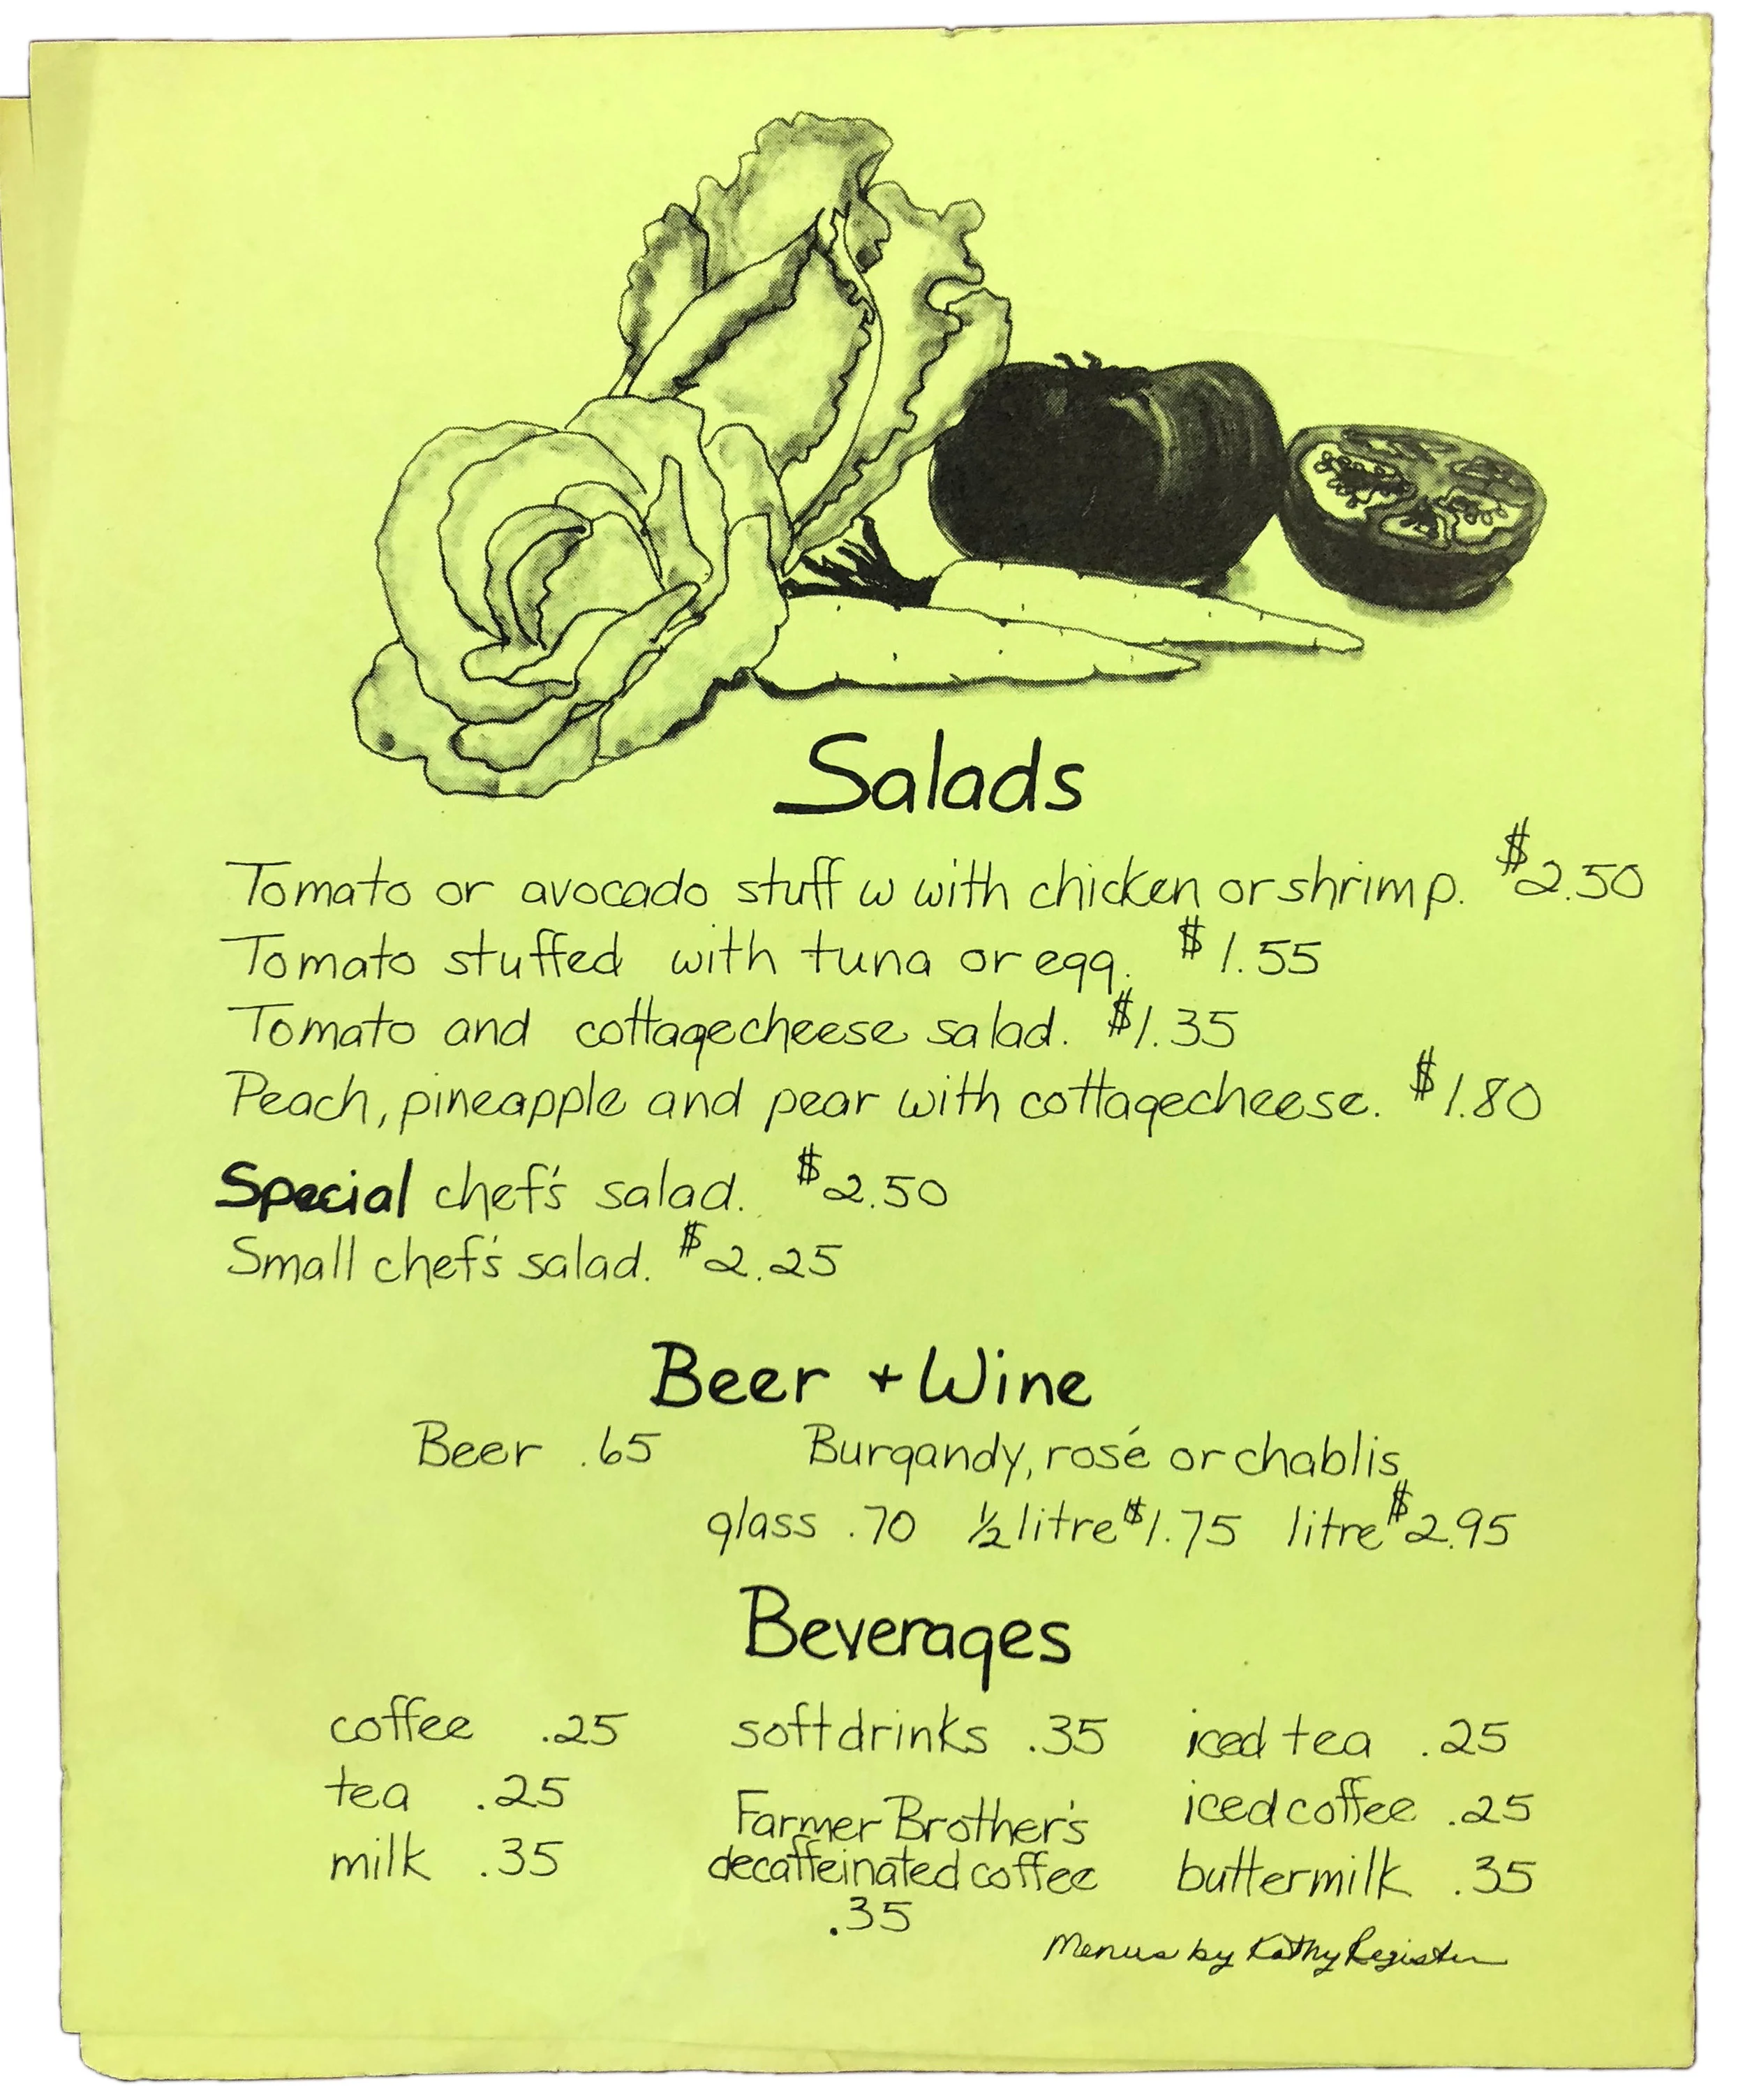 Salads
Tomato or avocado stuff w with chicken or shrimp. $2.50
Tomato stuffed with tuna or egg. $1.55
Tomato and cottagecheese salad. $1.35
Peach, pineapple and pear with cottagecheese. $1.80
Special chef's salad. $2.50
Small chef's salad. $2.25
Beer + Wine
Beer .65 Burgandy, rosé or chablis
glass .70 ½ litre $1.75 litre $2.95
Beverages
coffee .25 softdrinks .35 iced tea .25
tea .25 Farmer Brother's iced coffee .25
milk .35 decaffeinated coffee buttermilk .35
.35
Menus by Kathy Register